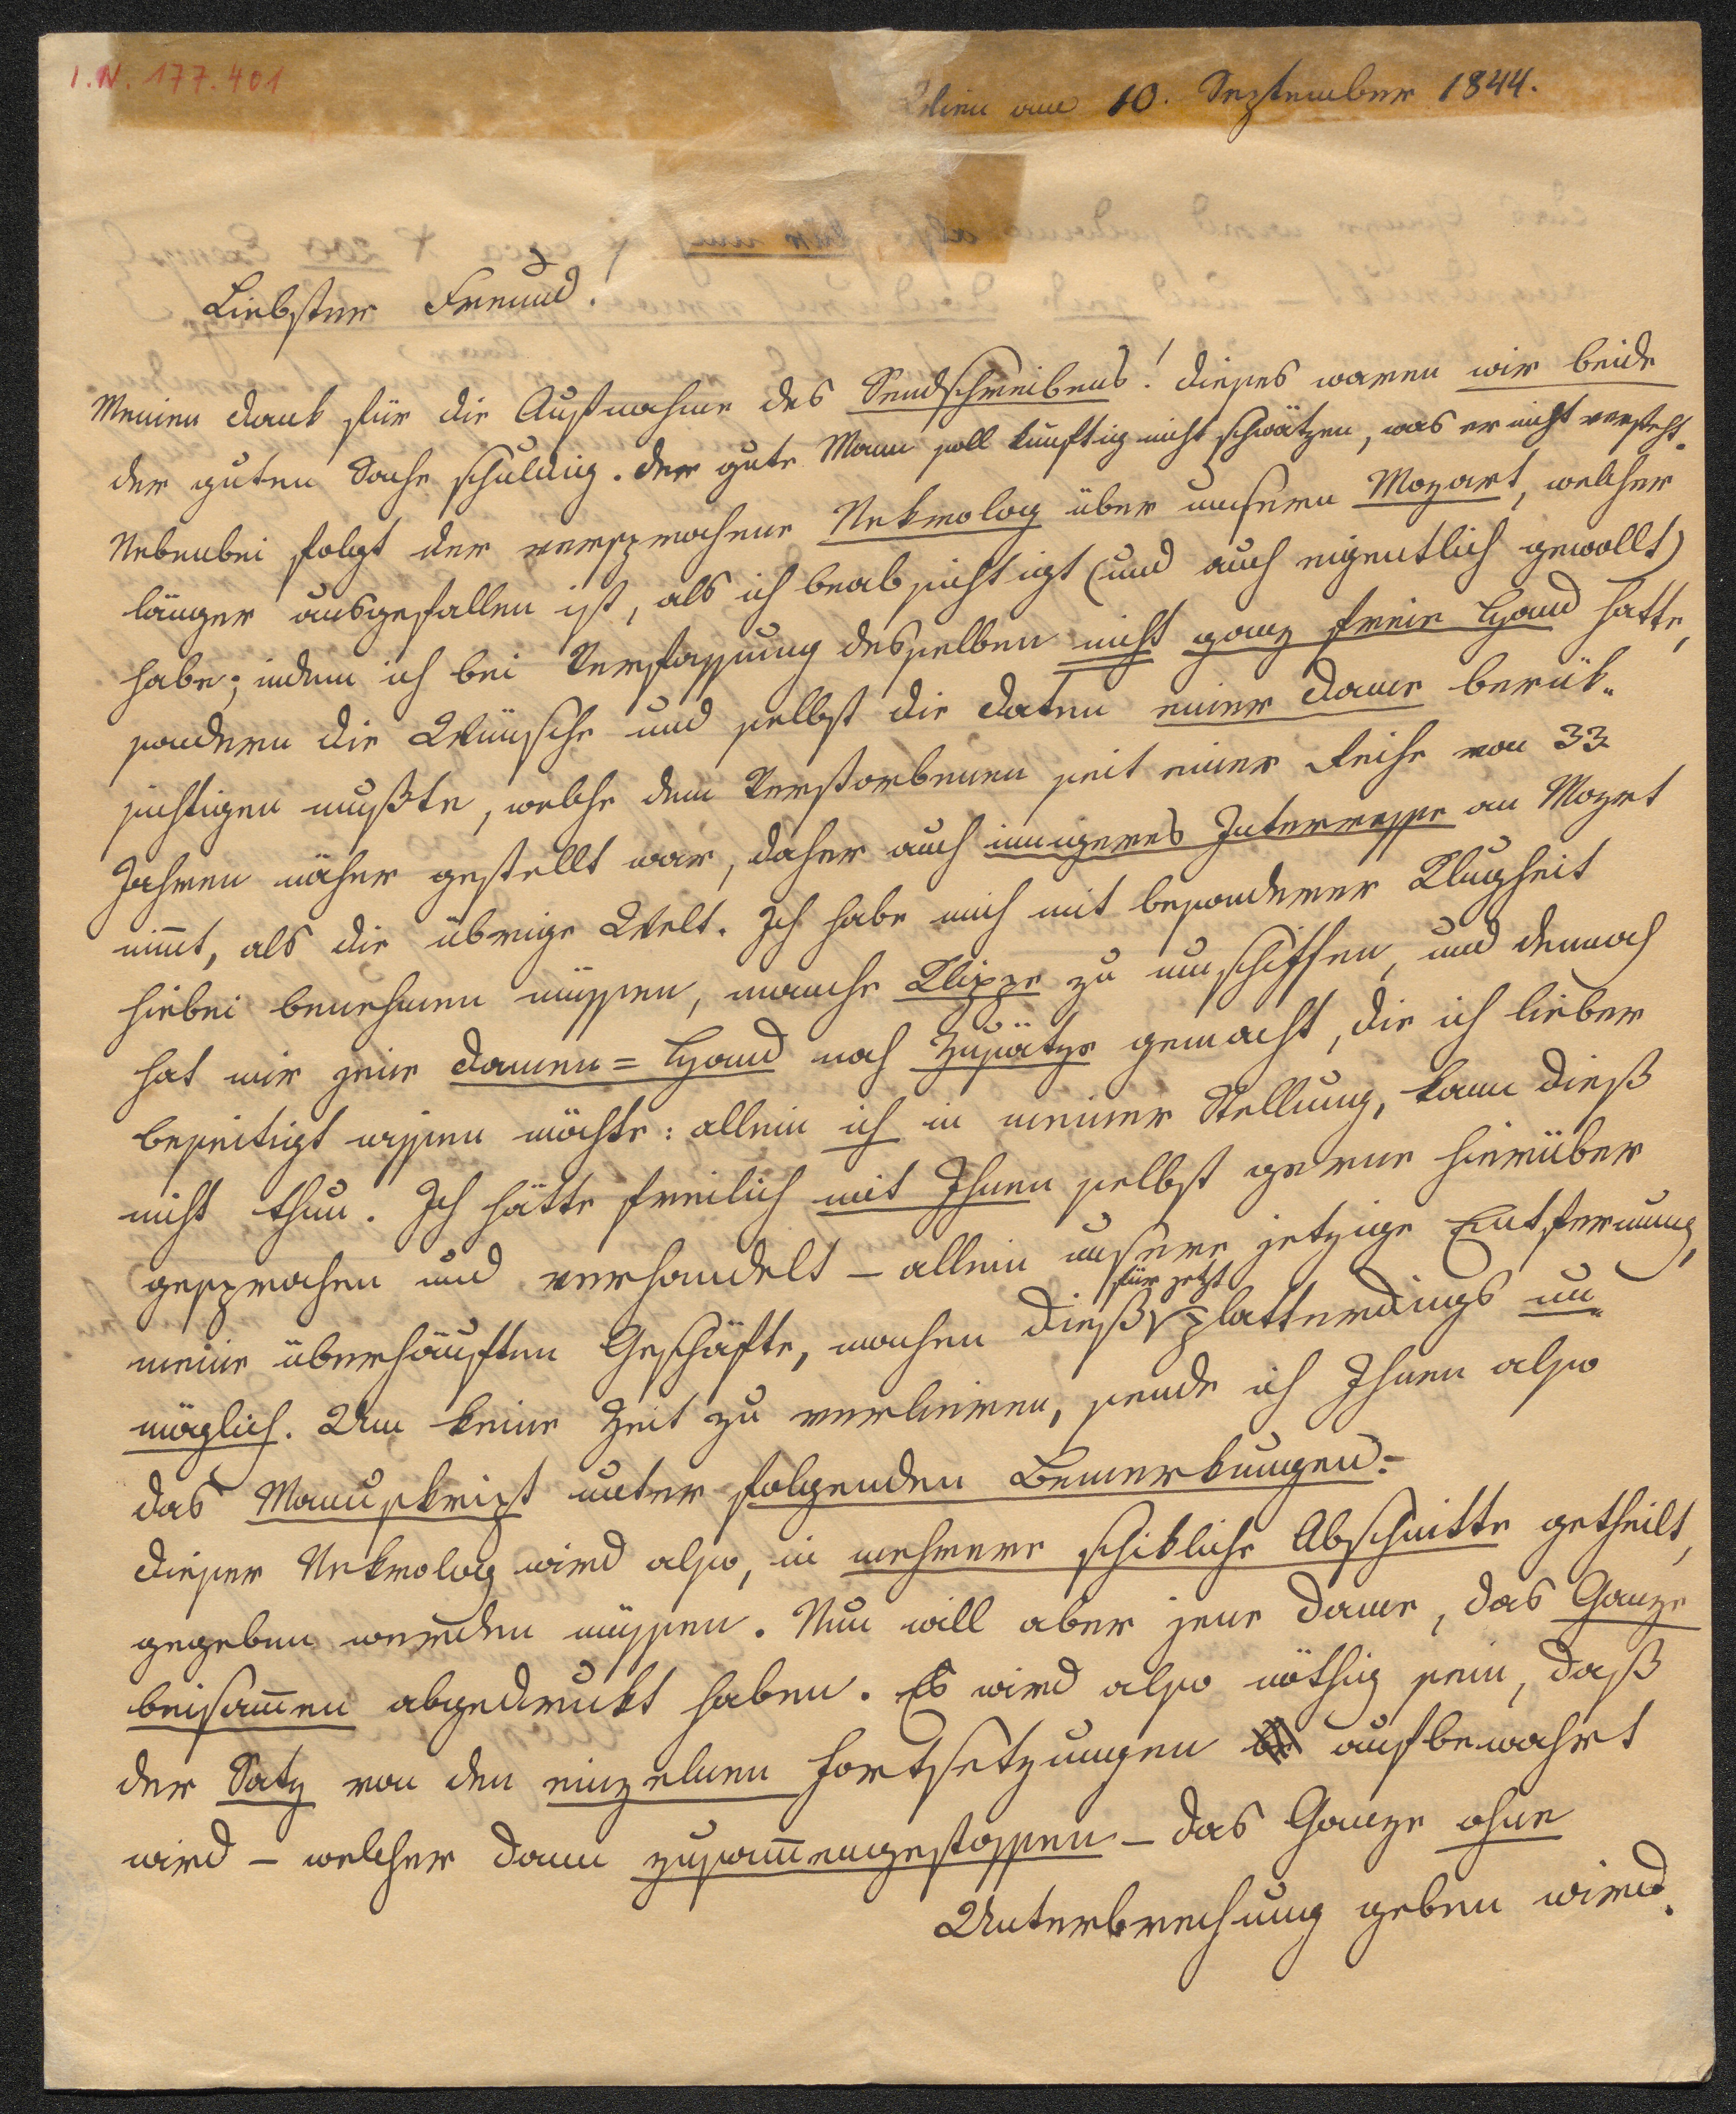 I.N. 177.401
Wien am 10. September 1844.
Liebster Freund!
Meinen Dank für die Aufnahme des Sendschreibens! Dieses waren wir beide
der guten Sache schuldig. Der gute Mann soll künftig nicht schwätzen, was er nicht versteht.
Nebenbei folgt der versprochene Nekrolog über unseren Mozart, welcher
länger ausgefallen ist, als ich beabsichtigt (und auch eigentlich gewollt)
habe; indem ich bei Verfassung desselben nicht ganz freie Hand hatte,
sondern die Wünsche und selbst die Daten einer Dame berük-
sichtigen mußte, welche dem Verstorbenen seit einer Reihe von 33
Jahren näher gestellt war, daher auch innigeres Interresse an Mozrt
nim̅t, als die übrige Welt. Ich habe mich mit besonderer Klugheit
hiebei benehmen müssen, manche Klippe zu umschiffen, und dennoch
hat mir jene Damen=Hand noch Zusätze gemacht, die ich lieber
beseitigt wissen möchte: allein ich in meiner Stellung, kann dieß
nicht thun. Ich hätte freilich mit Ihnen selbst gerne hierüber
gesprochen und verhandelt – allein unsere jetzige Entfernung,
für jetzt
meine überhäuften Geschäfte, machen dieß platterdings un-
möglich. Um keine Zeit zu verlieren, sende ich Ihnen also
das Manuskript unter folgenden Bemerkungen:
Dieser Nekrolog wird also, in mehrere schikliche Abschnitte getheilt,
gegeben werden müssen. Nun will aber jene Dame, das Ganze
beisam̅en abgedrukt haben. Es wird also nöthig sein, daß
der Satz von den einzelnen Fortsetzungen aufbewahrt
wird – welcher dann zusam̅engestossen – das Ganze ohne
Unterbrechung geben wird.